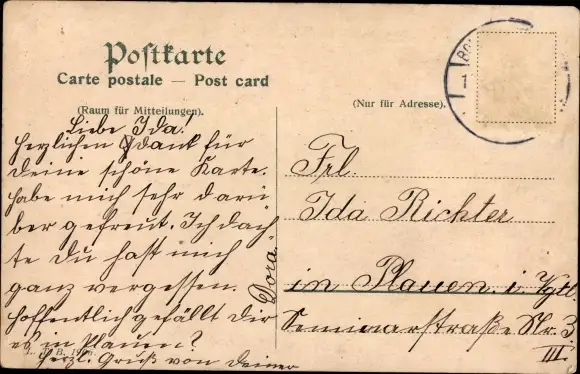 Postkarte
Carte postale — Post card
(Raum für Mitteilungen).
(Nur für Adresse).
Liebe Ida!
Herzlichen Dank für
deine schöne Karte.
habe mich sehr darü
ber gefreut. Ich dach
te du hast mich
ganz vergessen.
Hoffentlich gefällt dir
es in Plauen?
Herzl. Gruß von Deiner
Dora.
Frl.
Ida Richter
in Plauen. i Vgtl.
Seminarstraße Nr. 3.
III.